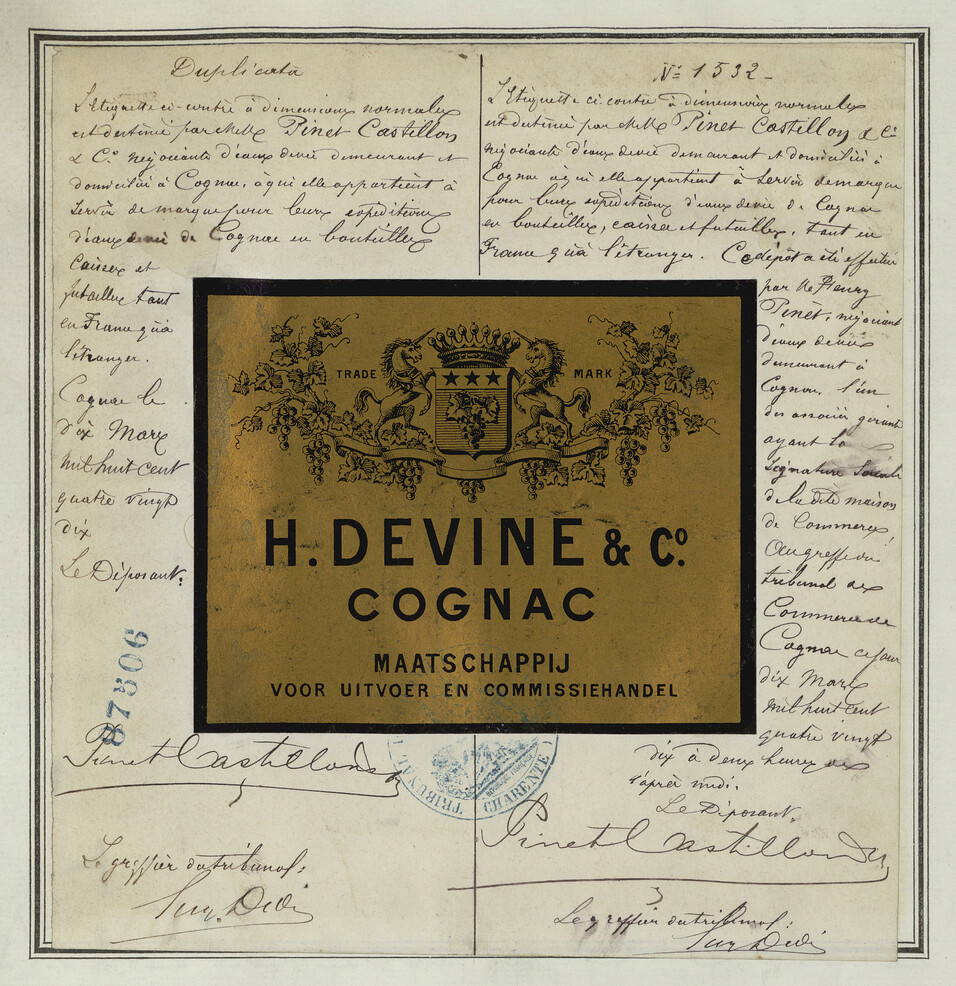 Duplicata
L'étiquette ci-contre à dimensions normales
est destinée par MM Pinet Castillon
& Cº négociants d'eaux de vie demeurant et
domiciliés à Cognac, à qui elle appartient à
servir de marque pour leurs expéditions
d'eaux de vie de Cognac en bouteilles
Caisses et
futailles tant
en France qu'à
l'étranger.
Cognac le
dix Mars
mil huit cent
quatre vingt
dix
Le Déposant:
87806
Pinet Castillon & Cº
Le greffier du tribunal:
Nº 1532 -
L'Etiquette ci contre à dimensions normales
est destinée par MM Pinet Castillon & Cº
négociants d'eaux de vie demeurant et domiciliés à
Cognac à qui elle appartient à servir de marque
pour leurs expéditions d'eaux de vie de Cognac
en bouteilles, caisses et futailles, tant en
France qu'à l'étranger. Ce dépôt a été effectué
par Mr Henry
Pinet, négociant
d'eaux de vie
demeurant à
Cognac, l'un
des associés gérant
ayant la
signature sociale
de la dite maison
de Commerce,
Au greffe du
tribunal de
Commerce de
Cognac ce jour
dix Mars
mil huit cent
quatre vingt
dix à deux heures de
l'après midi.
Le Déposant,
Pinet Castillon & Cº
Le greffier du tribunal:
TRADE MARK
H. DEVINE & Cº.
COGNAC
MAATSCHAPPIJ
VOOR UITVOER EN COMMISSIEHANDEL
TRIBUNAL
CHARENTE